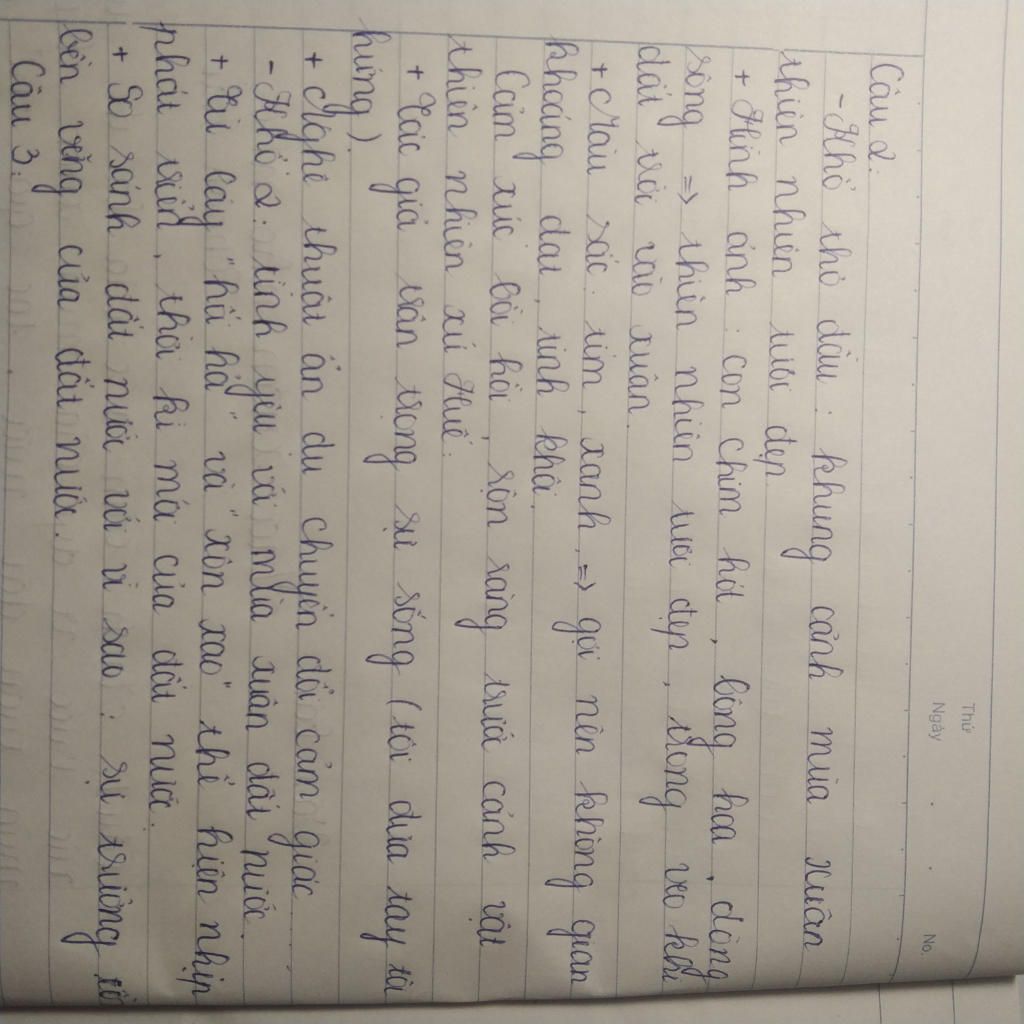 Thứ
Ngày . . No.
Câu 2.
- Khổ thơ đầu : khung cảnh mùa xuân
thiên nhiên tươi đẹp
+ Hình ảnh : con chim hót, bông hoa, dòng
sông => thiên nhiên tươi đẹp, trong veo khi
đất trời vào xuân.
+ Màu sắc : tím, xanh, => gợi nên không gian
khoáng đạt, tinh khôi.
Cảm xúc bồi hồi, rộn ràng trước cảnh vật
thiên nhiên xứ Huế.
+ Tác giả trân trọng sự sống (tôi đưa tay tôi
hứng)
+ Nghệ thuật ẩn dụ chuyển đổi cảm giác
- Khổ 2 : tình yêu với mùa xuân đất nước.
+ Từ láy "hối hả" và "xôn xao" thể hiện nhịp
phát triển, thời kì mới của đất nước.
+ So sánh đất nước với vì sao : sự trường tồ
bền vững của đất nước.
Câu 3.